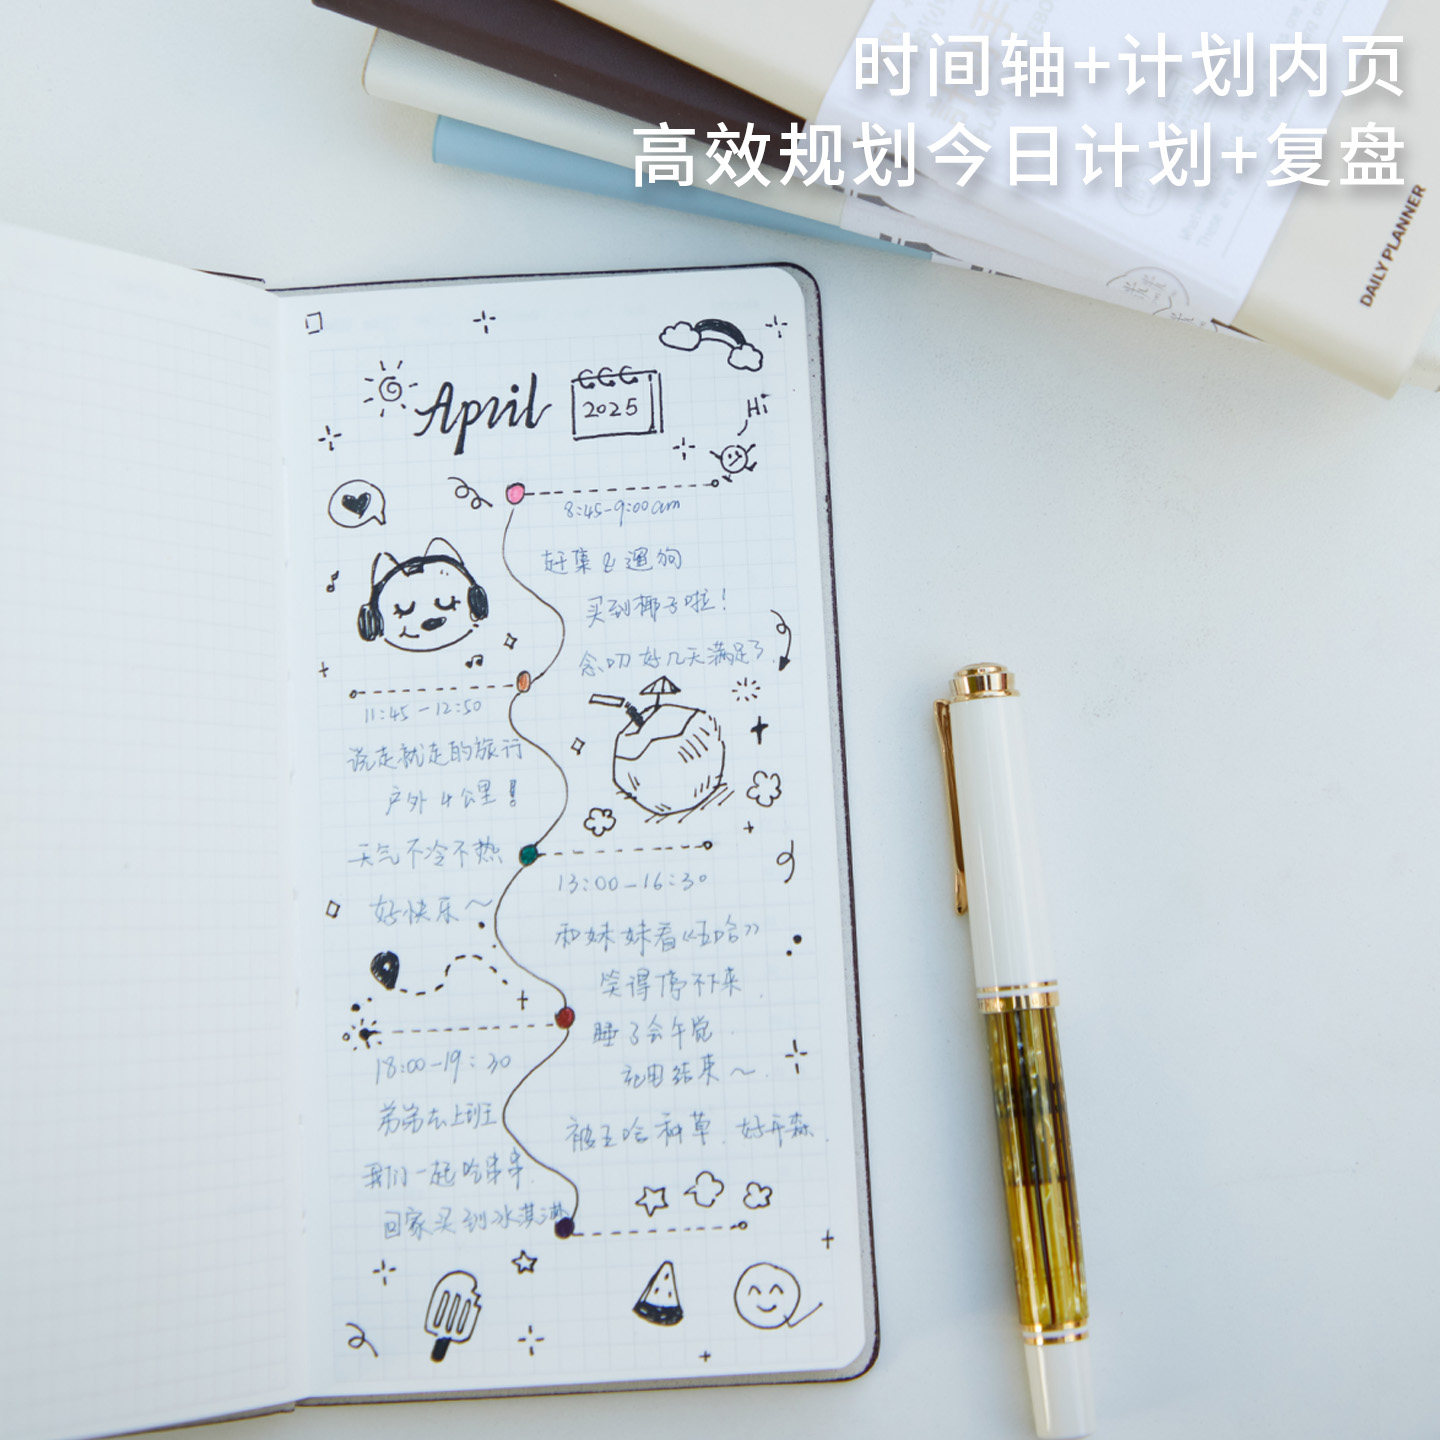 时间轴+计划内页
高效规划今日计划+复盘
DAILY PLANNER
April
2025
Hi
8:45-9:00am
赶集&遛狗
买到椰子啦！
念叨好几天满足了
11:45-12:50
说走就走的旅行
户外4公里！
天气不冷不热
好快乐~
13:00-16:30
和妹妹看《王哈》
笑得停不下来.
睡了会午觉.
充电结束~.
被王哈种草.好开森.
18:00-19:30
弟弟去上班
我们一起吃串串.
回家买到冰淇淋